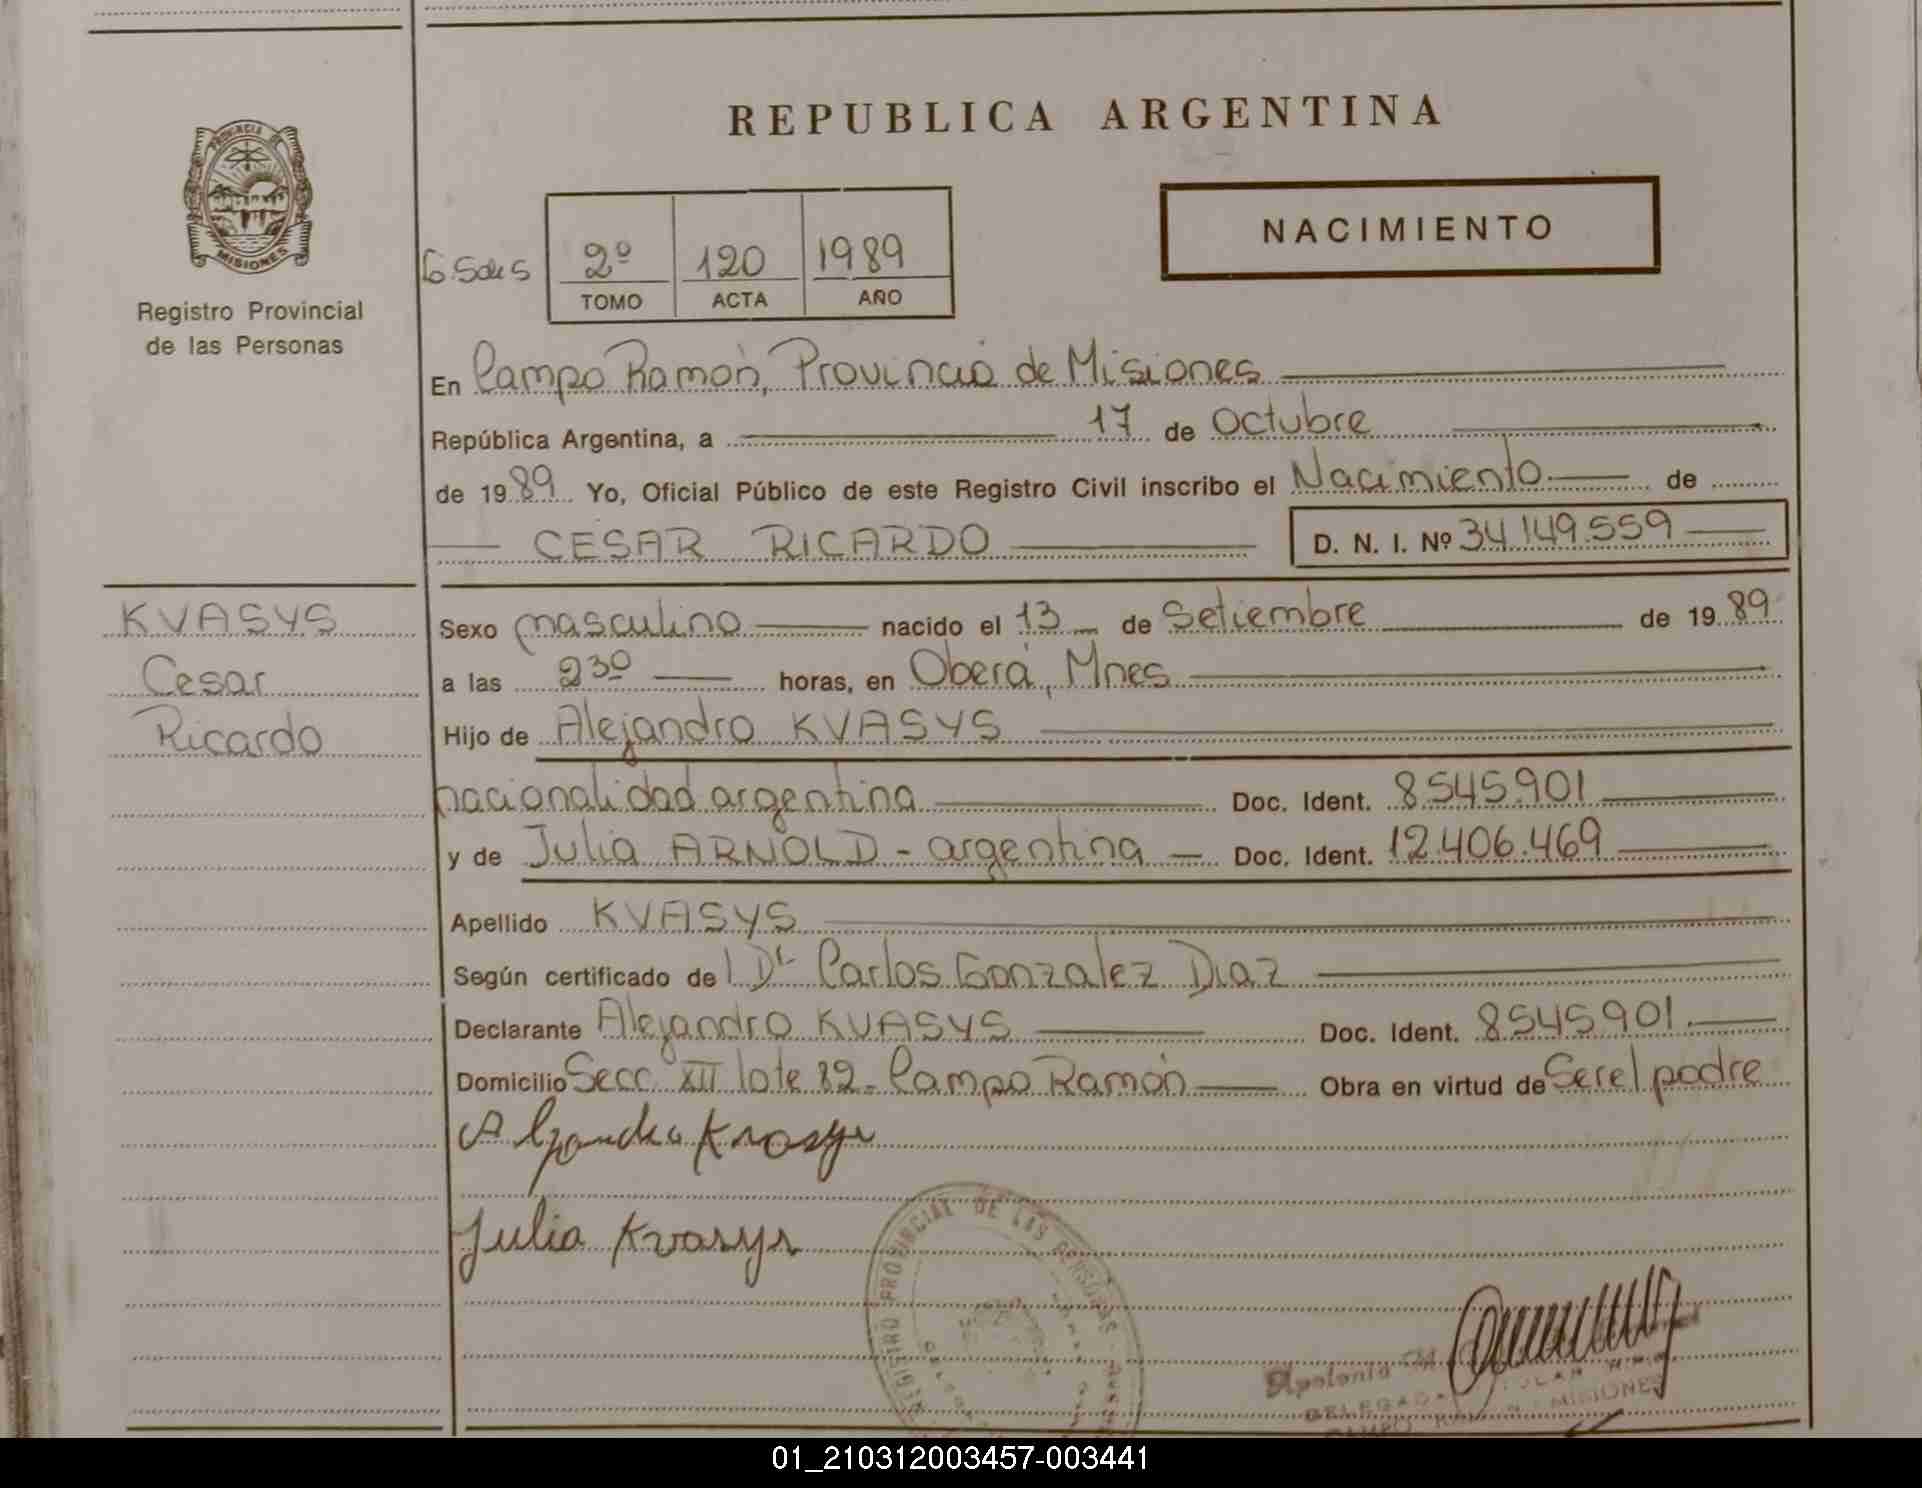 REPUBLICA ARGENTINA
PROVINCIA DE
MISIONES
Registro Provincial
de las Personas
NACIMIENTO
2º 120 1989
TOMO ACTA AÑO
En Campo Ramón, Provincia de Misiones
República Argentina, a 17 de Octubre
de 1989 Yo, Oficial Público de este Registro Civil inscribo el Nacimiento de
CESAR RICARDO D. N. I. Nº 34.149.559
KVASYS
Cesar
Ricardo
Sexo masculino nacido el 13 de Setiembre de 1989
a las 2³⁰ horas, en Oberá, Mnes
Hijo de Alejandro KVASYS
nacionalidad argentina Doc. Ident. 8.545.901
y de Julia ARNOLD - argentina Doc. Ident. 12.406.469
Apellido KVASYS
Según certificado del Dr Carlos Gonzalez Diaz
Declarante Alejandro KVASYS Doc. Ident. 8545901
Domicilio Secc. XII lote 82 - Campo Ramón Obra en virtud de Ser el padre
Julia Kvasys
REGISTRO PROVINCIAL DE LAS PERSONAS
Apolonio
CAMPO RAMON - MISIONES
01_210312003457-003441